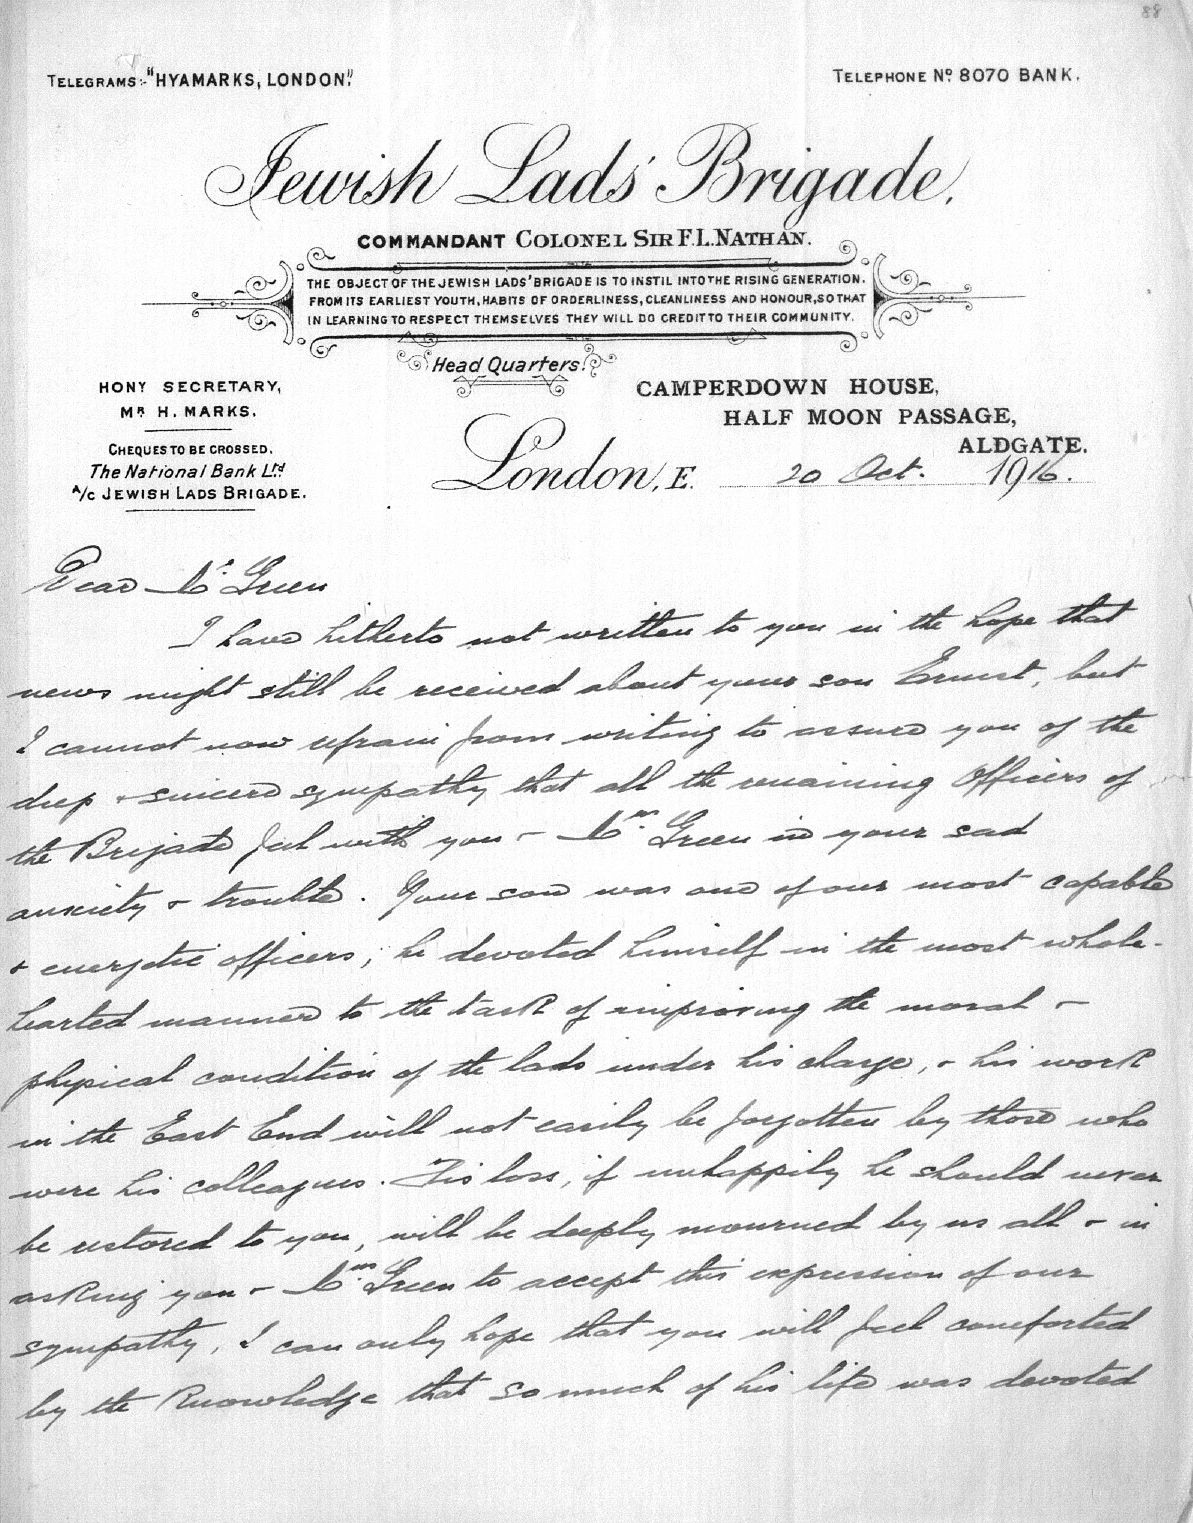 88
TELEGRAMS:-"HYAMARKS, LONDON."
TELEPHONE No. 8070 BANK.
Jewish Lads' Brigade.
COMMANDANT COLONEL SIR F.L. NATHAN.
THE OBJECT OF THE JEWISH LADS' BRIGADE IS TO INSTIL INTO THE RISING GENERATION.
FROM ITS EARLIEST YOUTH, HABITS OF ORDERLINESS, CLEANLINESS AND HONOUR, SO THAT
IN LEARNING TO RESPECT THEMSELVES THEY WILL DO CREDIT TO THEIR COMMUNITY.
Head Quarters:
HONY SECRETARY,
MR H. MARKS.
CHEQUES TO BE CROSSED.
The National Bank Ltd
A/C JEWISH LADS BRIGADE.
CAMPERDOWN HOUSE,
HALF MOON PASSAGE,
ALDGATE.
London, E. 20 Oct. 1916.
Dear Mr. Green
I have hitherto not written to you in the hope that
news might still be received about your son Ernest, but
I cannot now refrain from writing to assure you of the
deep & sincere sympathy that all the remaining Officers of
the Brigade feel with you & Mrs. Green in your sad
anxiety & trouble. Your son was one of our most capable
& energetic officers; he devoted himself in the most whole-
hearted manner to the task of improving the moral &
physical condition of the lads under his charge, & his work
in the East End will not easily be forgotten by those who
were his colleagues. His loss, if unhappily he should never
be restored to you, will be deeply mourned by us all & in
asking you & Mrs. Green to accept this expression of our
sympathy, I can only hope that you will feel comforted
by the knowledge that so much of his life was devoted